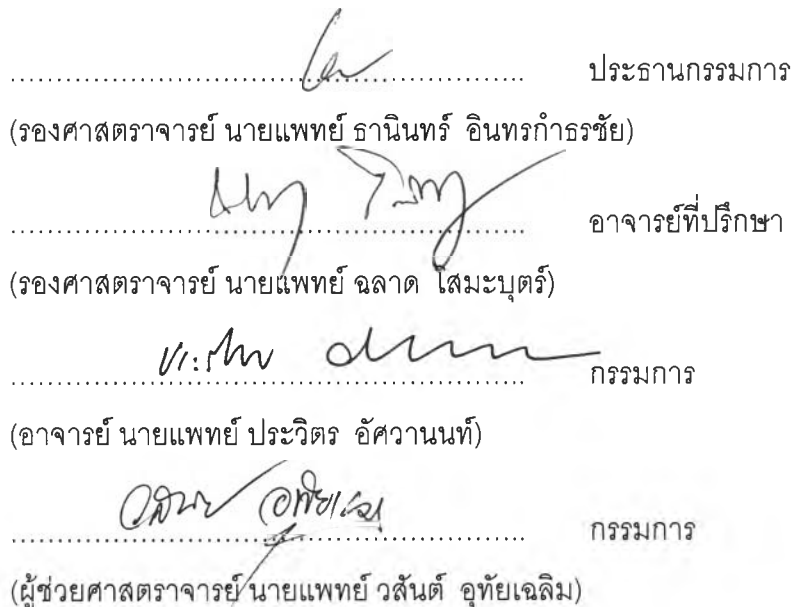 ........................................ ประธานกรรมการ
(รองศาสตราจารย์ นายแพทย์ ธานินทร์ อินทรกำธรชัย)
........................................ อาจารย์ที่ปรึกษา
(รองศาสตราจารย์ นายแพทย์ ฉลาด โสมะบุตร์)
........................................ กรรมการ
(อาจารย์ นายแพทย์ ประวิตร อัศวานนท์)
........................................ กรรมการ
(ผู้ช่วยศาสตราจารย์ นายแพทย์ วสันต์ อุทัยเฉลิม)